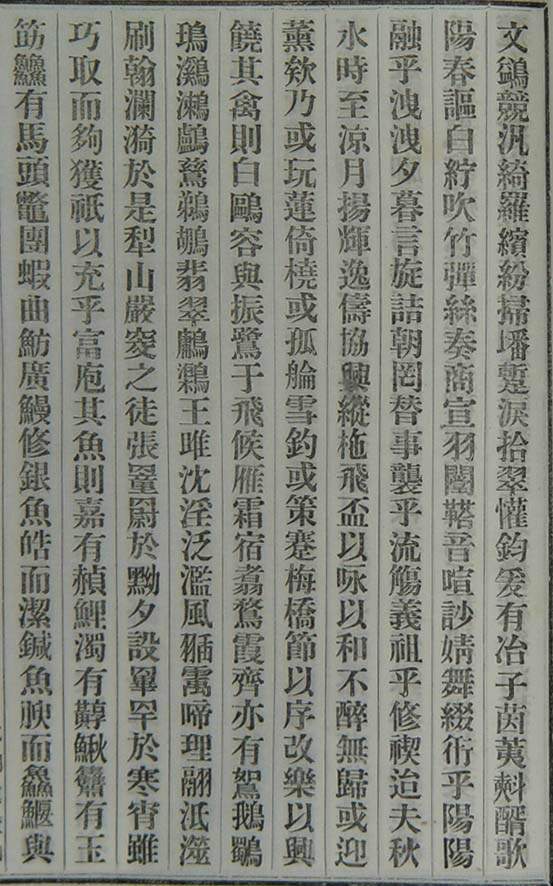 文鷁競汎綺羅繽紛掃墦蹔淚拾翠懽鈞爰有冶子茵荑斞醑歌
陽春謳白紵吹竹彈絲奏商宣羽闛鞳音喧訬婧舞綴術乎陽陽
融乎洩洩夕暮言旋詰朝罔替事襲乎流觴義祖乎修禊迨夫秋
水時至涼月揚輝逸儔協興縱柂飛盃以咏以和不醉無歸或迎
薰欸乃或玩蓮倚橈或孤艑雪釣或策蹇梅橋節以序改樂以興
饒其禽則白鷗容與振鷺于飛候雁霜宿翥鶩霞齊亦有鴛鵝鸀
鳿鸂鶒鸕鶿鵜鶘翡翠鷫鷞王雎沈淫泛濫風㺄䨥啼理翮泜澨
刷翰瀾漪於是犁山嚴窔之徒張䍡罻於黝夕設罼罕於寒宵雖
巧取而夠獲祇以充乎富庖其魚則嘉有赬鯉濁有鱘鰍鱭有玉
筯鱻有馬頭鼈團蝦曲魴廣鰻修銀魚皓而潔鍼魚䏢而鱻鰋與